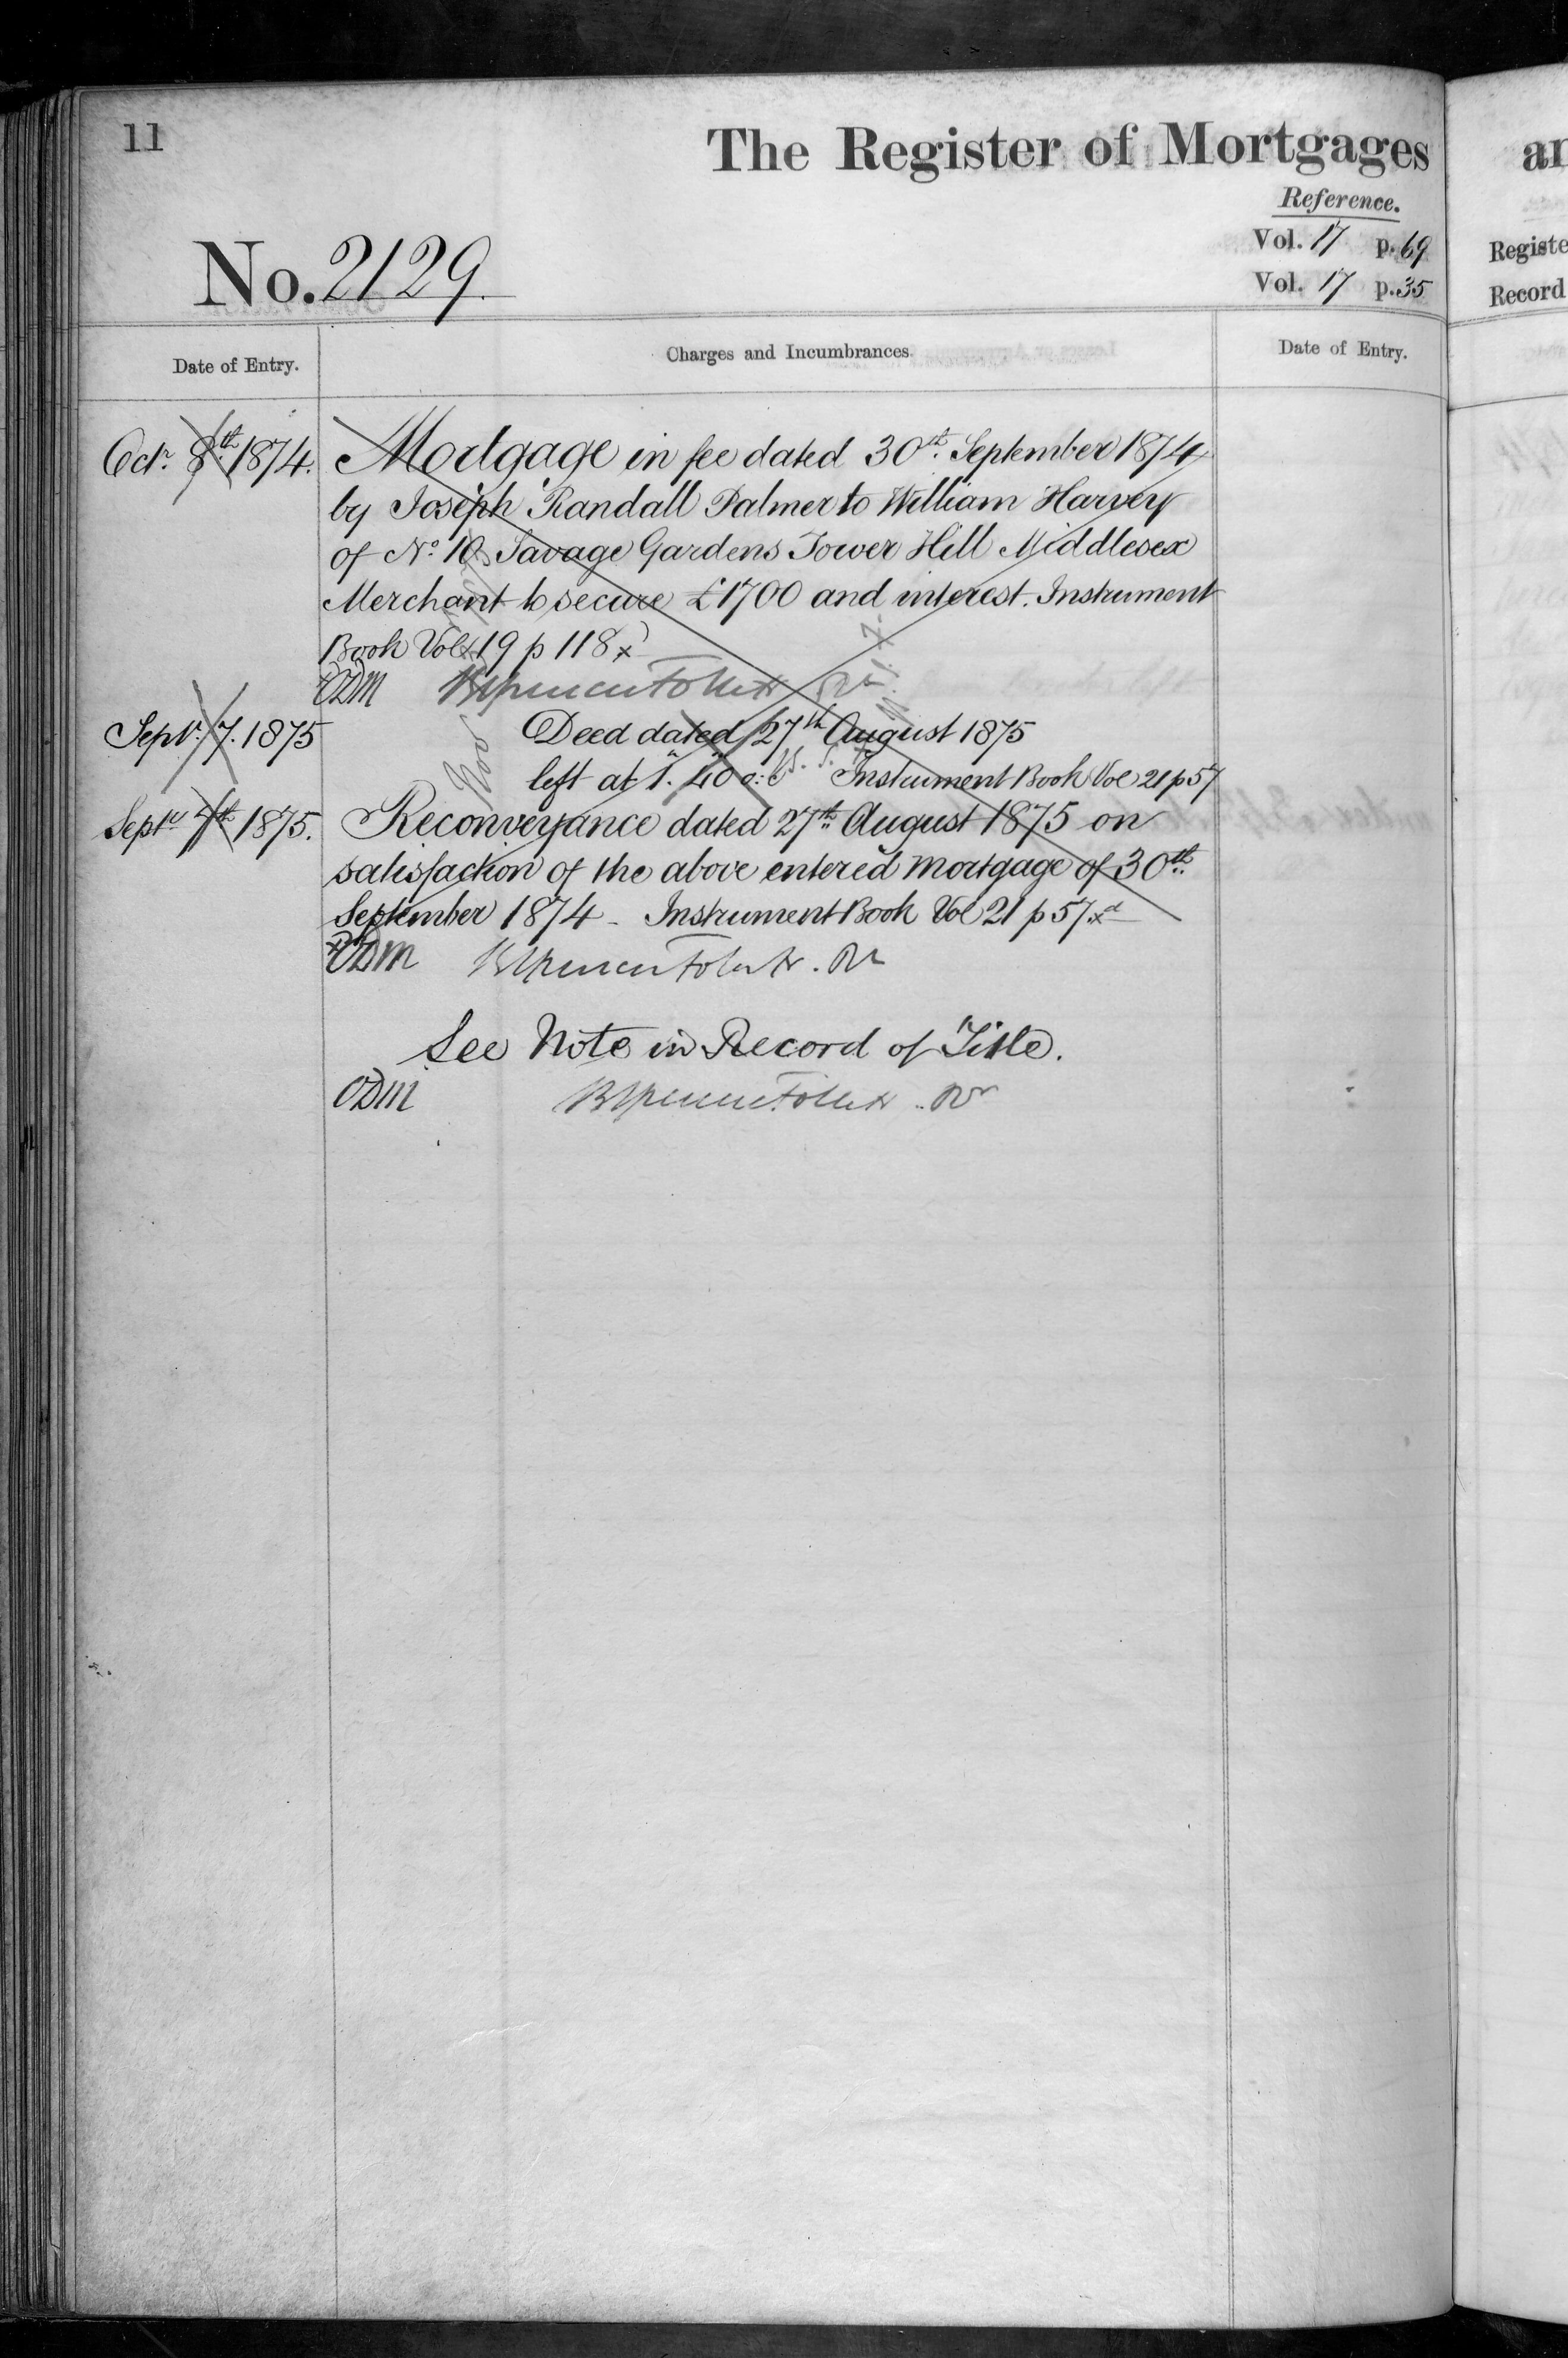 11
The Register of Mortgages
Reference.
Vol. 17 p. 69
Vol. 17 p. 35
No. 2129.
Date of Entry.
Charges and Incumbrances.
Date of Entry.
Octr. 8th. 1874.
Mortgage in fee dated 30th. September 1874
by Joseph Randall Palmer to William Harvey
of No. 10 Savage Gardens Tower Hill Middlesex
Merchant to secure £1700 and interest. Instrument
Book Vol 19 p 118 x
ODM
Septr. 7. 1875
Deed dated 27th August 1875
left at 1. 40 Instrument Book Vol 21 p 57
Septr 7th 1875.
Reconveyance dated 27th August 1875 on
satisfaction of the above entered mortgage of 30th
September 1874 - Instrument Book Vol 21 p 57 x
ODM
See Note in Record of Title.
ODM
ar
Registe
Record